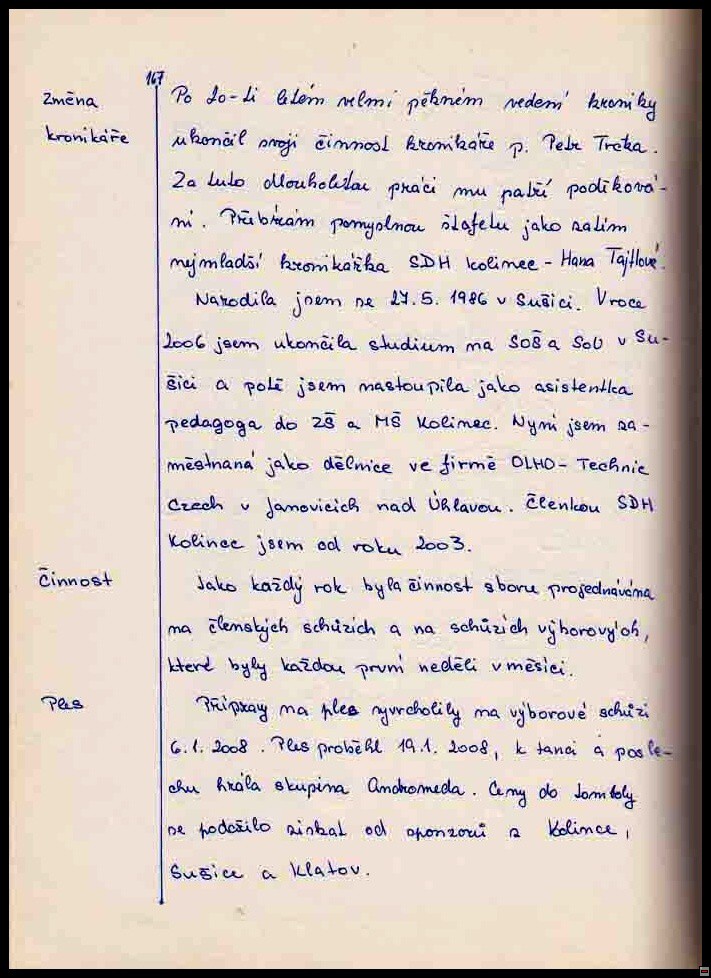 167
Změna
kronikáře
Po 20-ti letém velmi pěkném vedení kroniky
ukončil svoji činnost kronikáře p. Petr Treka.
Za tuto dlouholetou práci mu patří poděková-
ní. Přebírám pomyslnou štafetu jako zatím
nejmladší kronikářka SDH Kolinec - Hana Tajtlová.
Narodila jsem se 27.5. 1986 v Sušici. V roce
2006 jsem ukončila studium na SOŠ a SOU v Su-
šici a poté jsem nastoupila jako asistentka
pedagoga do ZŠ a MŠ Kolinec. Nyní jsem za-
městnaná jako dělnice ve firmě OLHO-Technic
Czech v Janovicích nad Úhlavou. Členkou SDH
Kolinec jsem od roku 2003.
Činnost
Jako každý rok byla činnost sboru projednávána
na členských schůzích a na schůzích výborových,
které byly každou první neděli v měsíci.
Ples
Přípravy na ples vyvrcholily na výborové schůzi
6.1. 2008. Ples proběhl 19.1. 2008, k tanci a posle-
chu hrála skupina Andromeda. Ceny do tomboly
se podařilo získat od sponzorů z Kolince,
Sušice a Klatov.